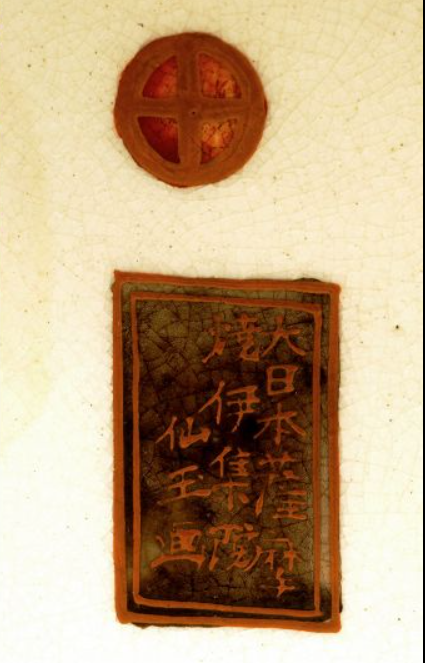 大日本薩摩
焼伊集院
仙玉画